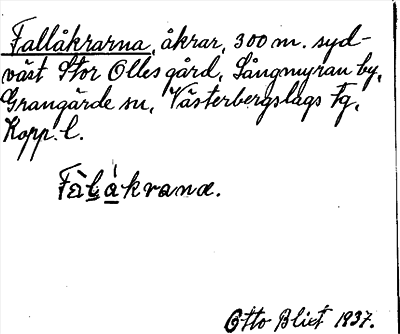 Fallåkrarna, åkrar, 300 m. syd-
väst Stor Olles gård, Långmyran by,
Grangärde sn, Västerbergslags Fg,
Kopp. l.
Fàlákranα.
Otto Blixt 1937.